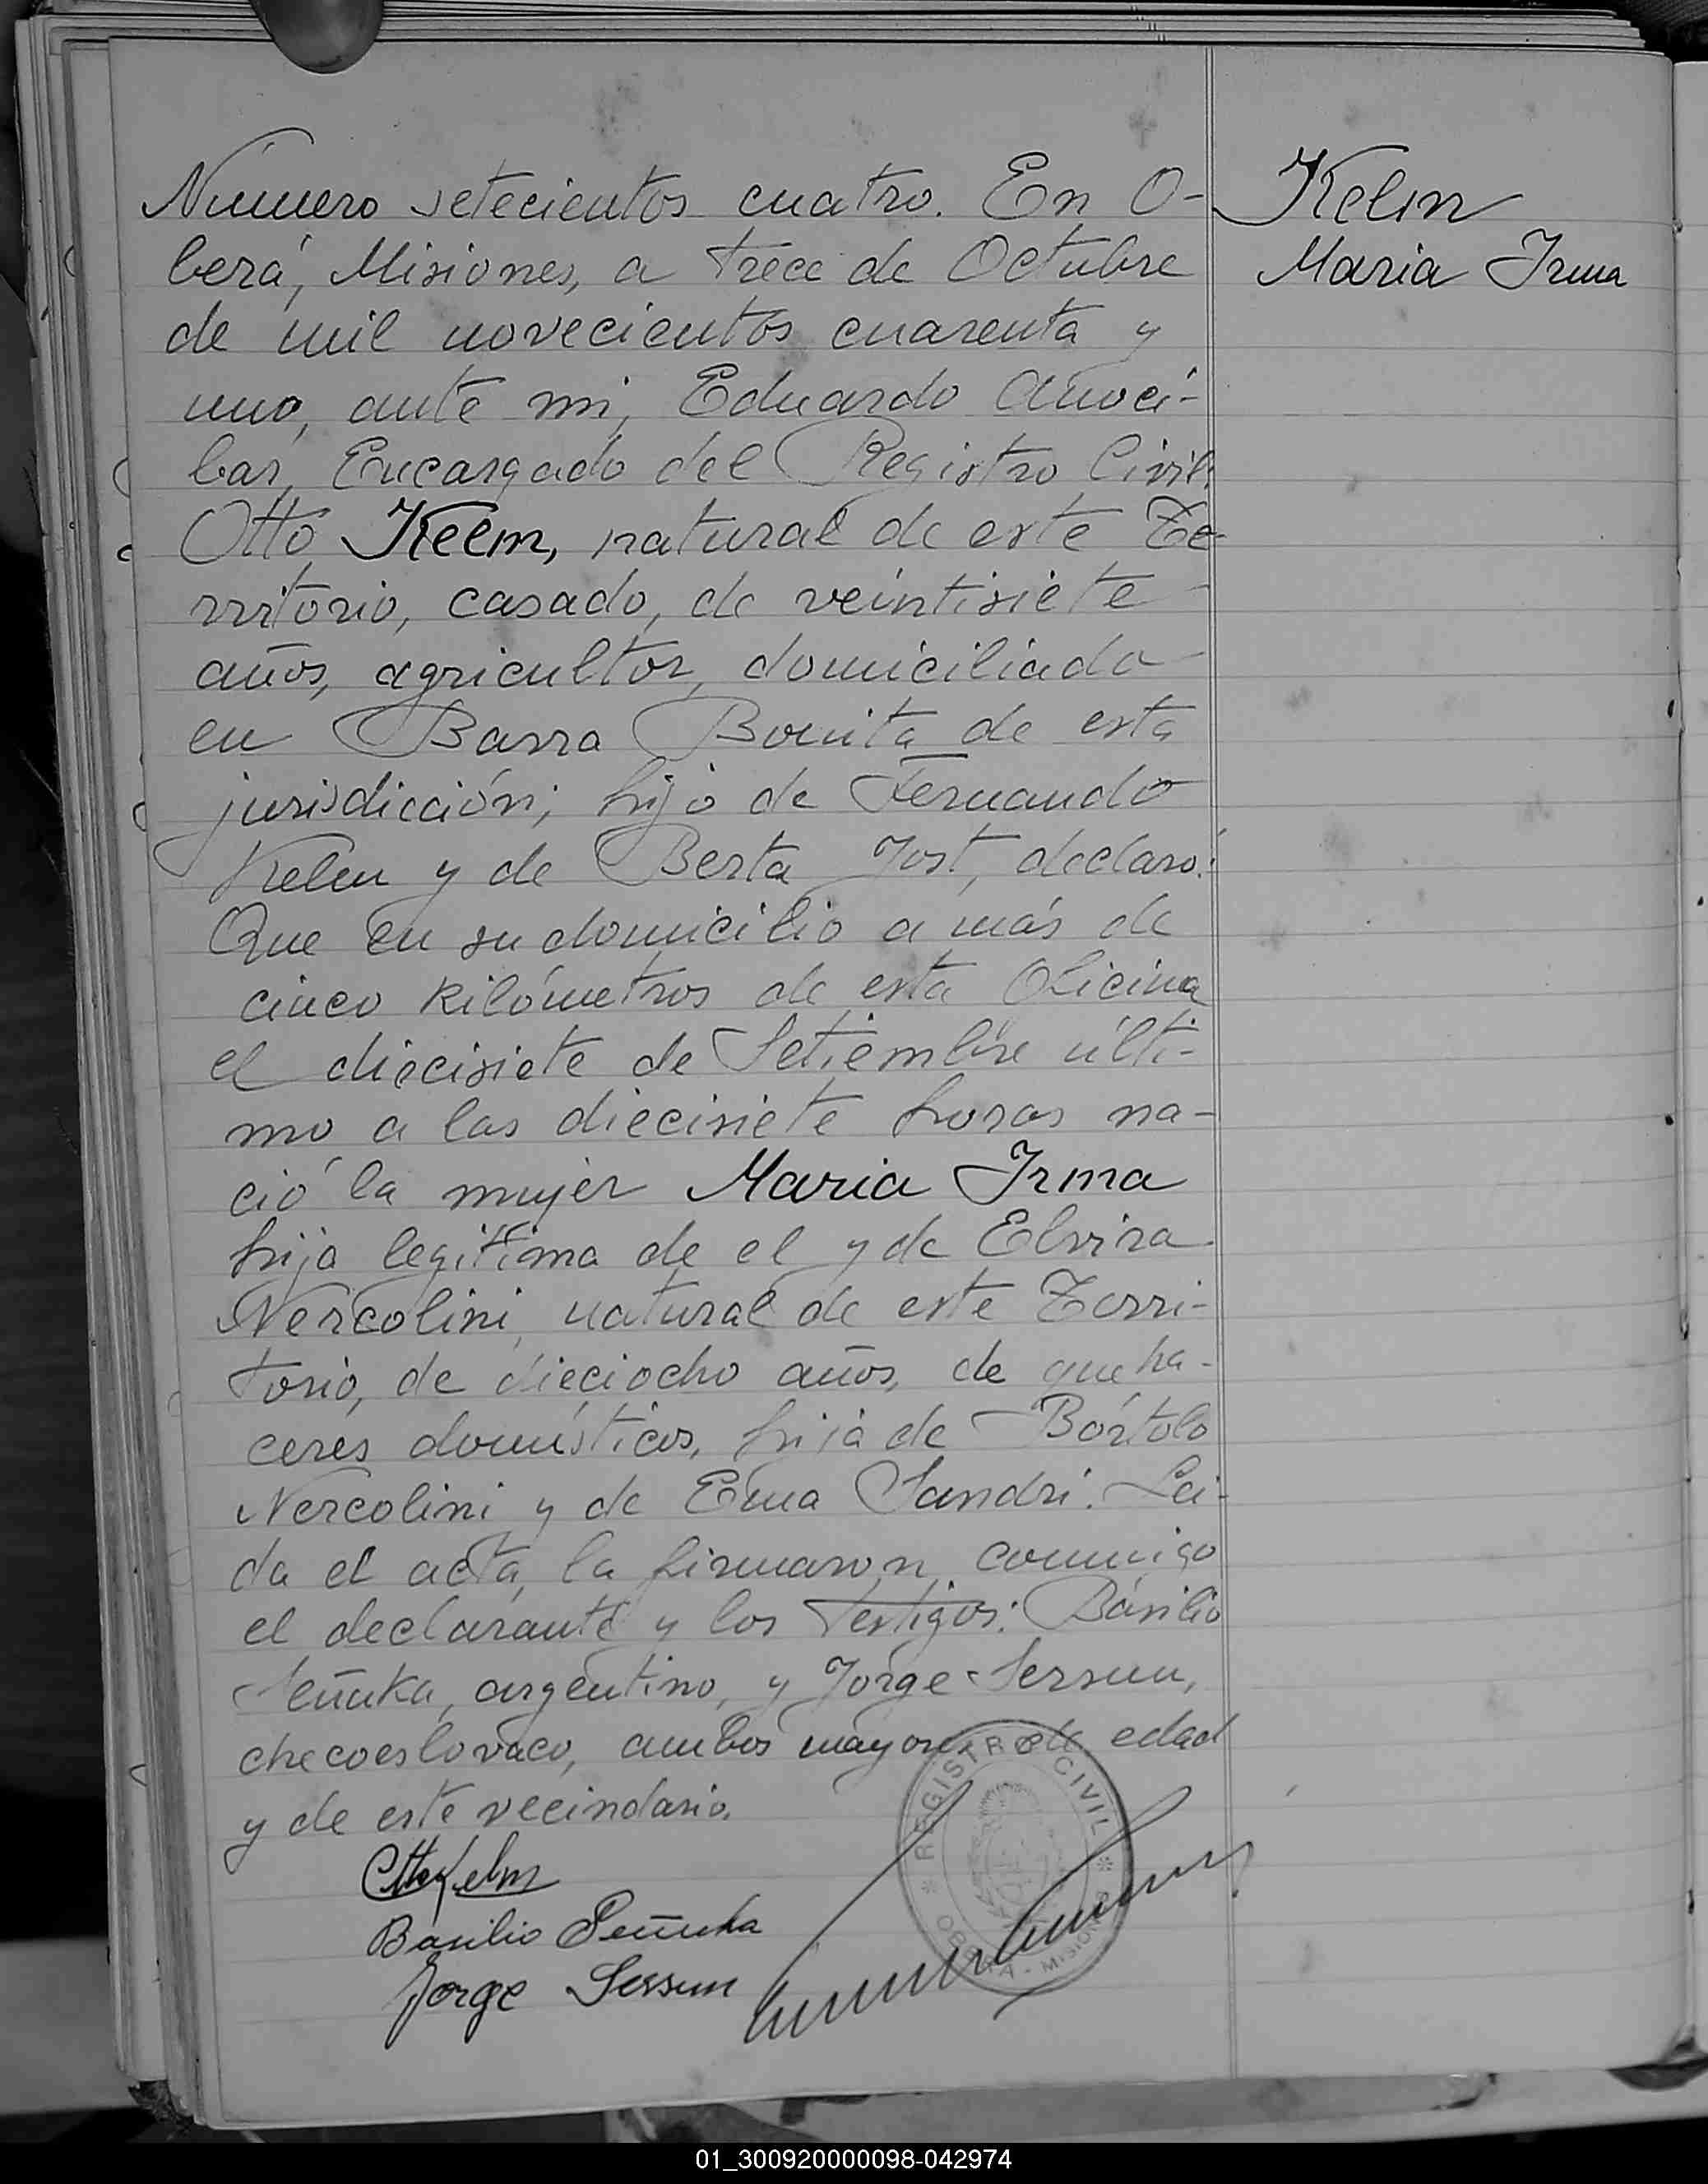 Número setecientos cuatro. En O-
berá, Misiones, a trece de Octubre
de mil novecientos cuarenta y
uno, ante mi, Eduardo Anoci-
bar, Encargado del Registro Civil:
Otto Kelm, natural de este Te-
rritorio, casado, de veintisiete
años, agricultor, domiciliado
en Barra Bonita de esta
jurisdicción; hijo de Fernando
Kelm y de Berta Jost, declaró:
Que en su domicilio a más de
cinco kilómetros de esta Oficina
el diecisiete de Setiembre últi-
mo a las diecisiete horas na-
ció la mujer Maria Irma
hija legítima de el y de Elvira
Nercolini, natural de este Terri-
torio, de dieciocho años, de queha-
ceres domésticos, hija de Bórtolo
Nercolini y de Ema Sandri. Lei-
da el acta, la firmaron conmigo
el declarante y los testigos: Basilio
Señuka, argentino, y Jorge Sersun,
checoeslovaco, ambos mayores de edad
y de este vecindario.
Otto Kelm
Basilio Señuka
Jorge Sersun
Kelm
Maria Irma
REGISTRO CIVIL
OBERA - MISIONES
01_300920000098-042974